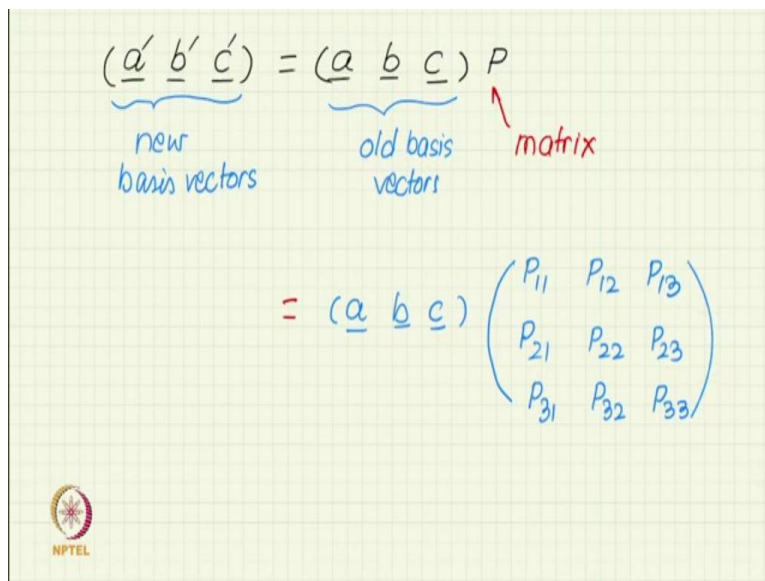 (a′ b′ c′) = (a b c) P
new basis vectors
old basis vectors
matrix
= (a b c) ( P₁₁ P₁₂ P₁₃
P₂₁ P₂₂ P₂₃
P₃₁ P₃₂ P₃₃ )
NPTEL